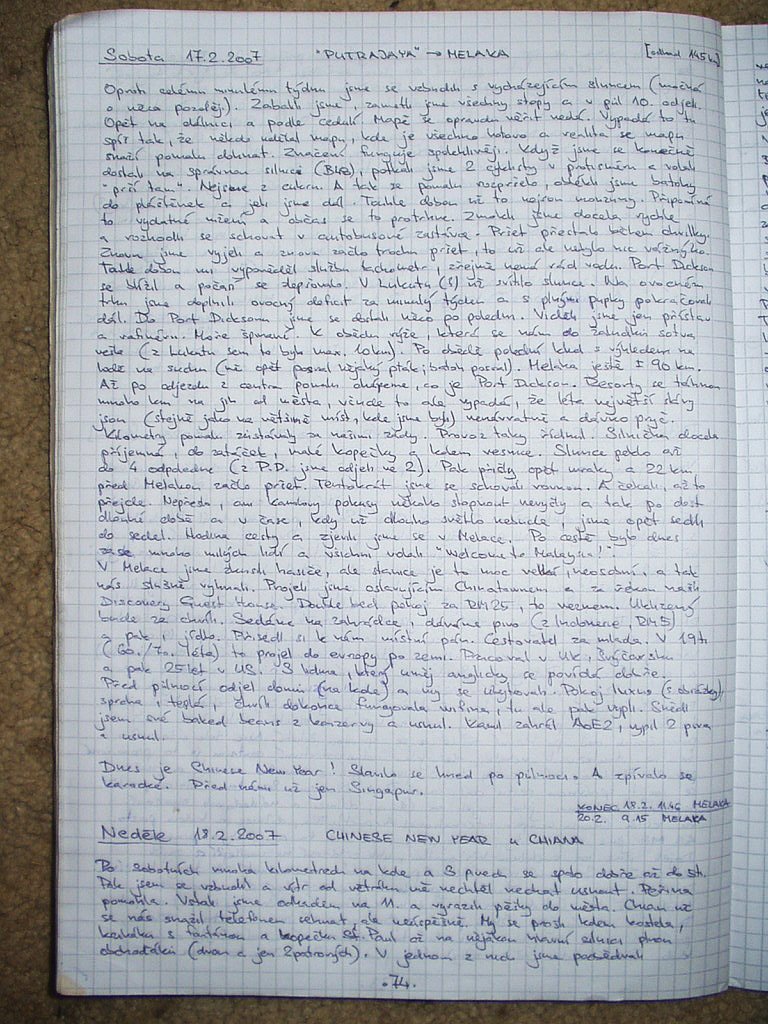 Sobota 17.2.2007 "PUTRAJAYA" → MELAKA [odhad 145km]
Oproti celému minulému týdnu jsme se vzbudili s vycházejícím sluncem (možná
o něco později). Zabalili jsme, zametli jsme všechny stopy a v půl 10. odjeli.
Opět na dálnici a podle cedulí. Mapě se opravdu věřit nedá. Vypadá to tu
spíš tak, že někdo udělal mapu, kde je všechno hotovo a realita se mapu
snaží pomalu dohnat. Značení funguje spolehlivěji. Když jsme se konečně
dostali na správnou silnici (B48), potkali jsme 2 cyklisty v protisměru a volali
"prší tam". Nejsme z cukru. A tak se pomalu rozpršelo, oblékli jsme batohy
do pláštěnek a jeli jsme dál. Touhle dobou už to nejsou monzuny. Připomíná
to vydatné mžení a občas se to protrhne. Zmokli jsme docela rychle
a rozhodli se schovat v autobusové zastávce. Pršet přestalo během chvilky.
Znovu jsme vyjeli a znova začlo trochu pršet, to už ale nebylo nic vážnýho.
Touhle dobou mi vypověděl službu tachometr, zřejmě nemá rád vodu. Port Dickson
se blížil a počasí se zlepšovalo. V Lukutu (S) už svítilo slunce. Na ovocném
trhu jsme doplnili ovocný deficit za minulý týden a s plnými pupky pokračovali
dál. Do Port Dicksonu jsme se dostali něco po poledni. Viděli jsme jen přístav
a rafinérii. Moře špinavé. K obědu rýže, která se nám do žaludků sotva
vešla (z Lukutu sem to bylo max. 10km). Po obědě polední klid s výhledem na
lodě na suchu (mě opět posral nějaký pták; batoh posral). Melaka ještě ± 90 km.
Až po odjezdu z centra pomalu chápeme, co je Port Dickson. Resorty se táhnou
mnoho km na jih od města, všude to ale vypadá, že léta největší slávy
jsou (stejně jako na většině míst, kde jsme byli) nenávratně a dávno pryč.
Kilometry pomalu zůstávaly za našimi zády. Provoz taky řídnul. Silnička docela
příjemná, do zatáček, malé kopečky a kolem vesnice. Slunce pálilo až
do 4 odpoledne (z P.D. jsme odjeli ve 2). Pak přišly opět mraky a 22 km
před Melakou začlo pršet. Tentokrát jsme se schovali rovnou. A čekali, až to
přejde. Nepřešlo, ani Kamilovy pokusy někoho stopnout nevyšly a tak po dost
dlouhé době a v čase, kdy už dlouho světlo nebude, jsme opět sedli
do sedel. Hodina cesty a zjevili jsme se v Melace. Po cestě bylo dnes
zase mnoho milých lidí a všichni volali "Welcome to Malaysia!"
V Melace jsme zkusili hasiče, ale stanice je to moc velká, neosobní, a tak
nás slušně vyhnali. Projeli jsme oslavujícím Chinatownem a za řekou našli
Discovery Guest House. Double bed pokoj za RM25, to vezmem. Uklizený
bude za chvíli. Sedáme na zahrádce, dáváme pivo (z Indonesie, RM5)
a pak i jídlo. Přisedl si k nám místní pán. Cestovatel za mlada. V 19ti
(60./70. léta) to projel do evropy po zemi. Pracoval v UK, Švýcarsku
a pak 25 let v US. S lidma, který uměj anglicky se povídá dobře.
Před půlnocí odjel domů (na kole) a my se ubytovali. Pokoj luxus (s obrázky),
sprcha, teplá, chvíli dokonce fungovala wifina, tu ale pak vypli. Snědl
jsem své baked beans z konzervy a usnul. Kamil zahrál AoE2, vypil 2 piva
a usnul.
Dnes je Chinese New Year! Slavilo se hned po půlnoci. A zpívalo se
karaoke. Před námi už jen Singapur.
KONEC 18.2. 11.46 MELAKA
20.2. 9.15 MELAKA
Neděle 18.2.2007 CHINESE NEW YEAR u CHUANA
Po sobotních mnoha kilometrech na kole a 3 pivech se spalo dobře až do 5ti.
Pak jsem se vzbudil a vítr od větráku už nechtěl nechat usnout. Peřina
pomohla. Vstali jsme odhadem na 11. a vyrazili pěšky do města. Chuan už
se nás snažil telefonem sehnat, ale neúspěšně. My se prošli kolem kostela,
kolem s fontánou a kopečku St. Paul až na nějakou hlavní silnici plnou
obchoďáků (dvou a jen 2patrových). V jednom z nich jsme poobědvali
.74.